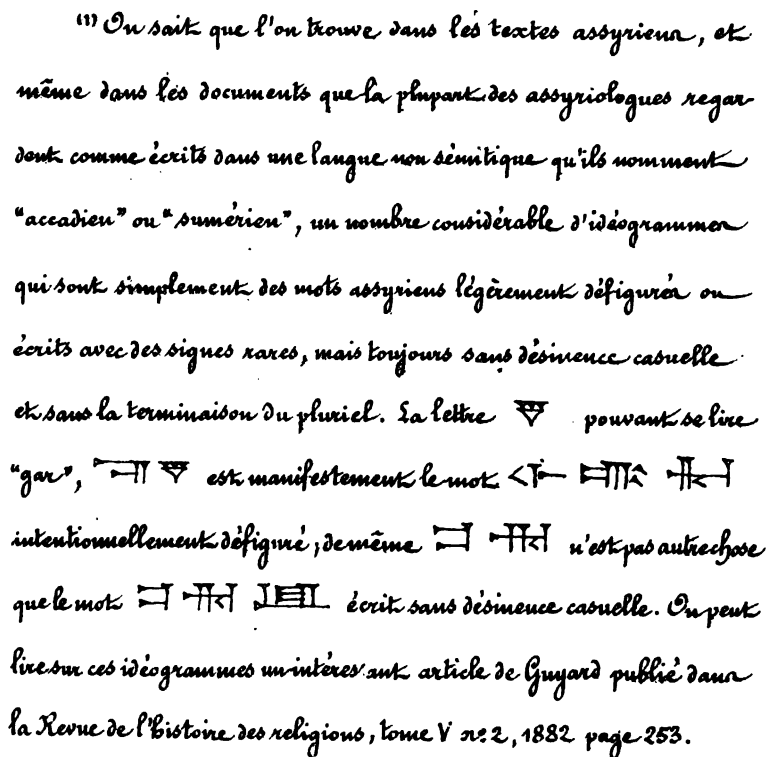 (1) On sait que l'on trouve dans les textes assyriens, et
même dans les documents que la plupart des assyriologues regar-
dent comme écrits dans une langue non sémitique qu'ils nomment
"accadien" ou "sumérien", un nombre considérable d'idéogrammes
qui sont simplement des mots assyriens légèrement défigurés ou
écrits avec des signes rares, mais toujours sans désinence casuelle
et sans la terminaison du pluriel. La lettre pouvant se lire
"gar", est manifestement le mot
intentionnellement défiguré; de même n'est pas autre chose
que le mot écrit sans désinence casuelle. On peut
lire sur ces idéogrammes un intéres ant article de Guyard publié dans
la Revue de l'histoire des religions, tome V nº 2, 1882 page 253.